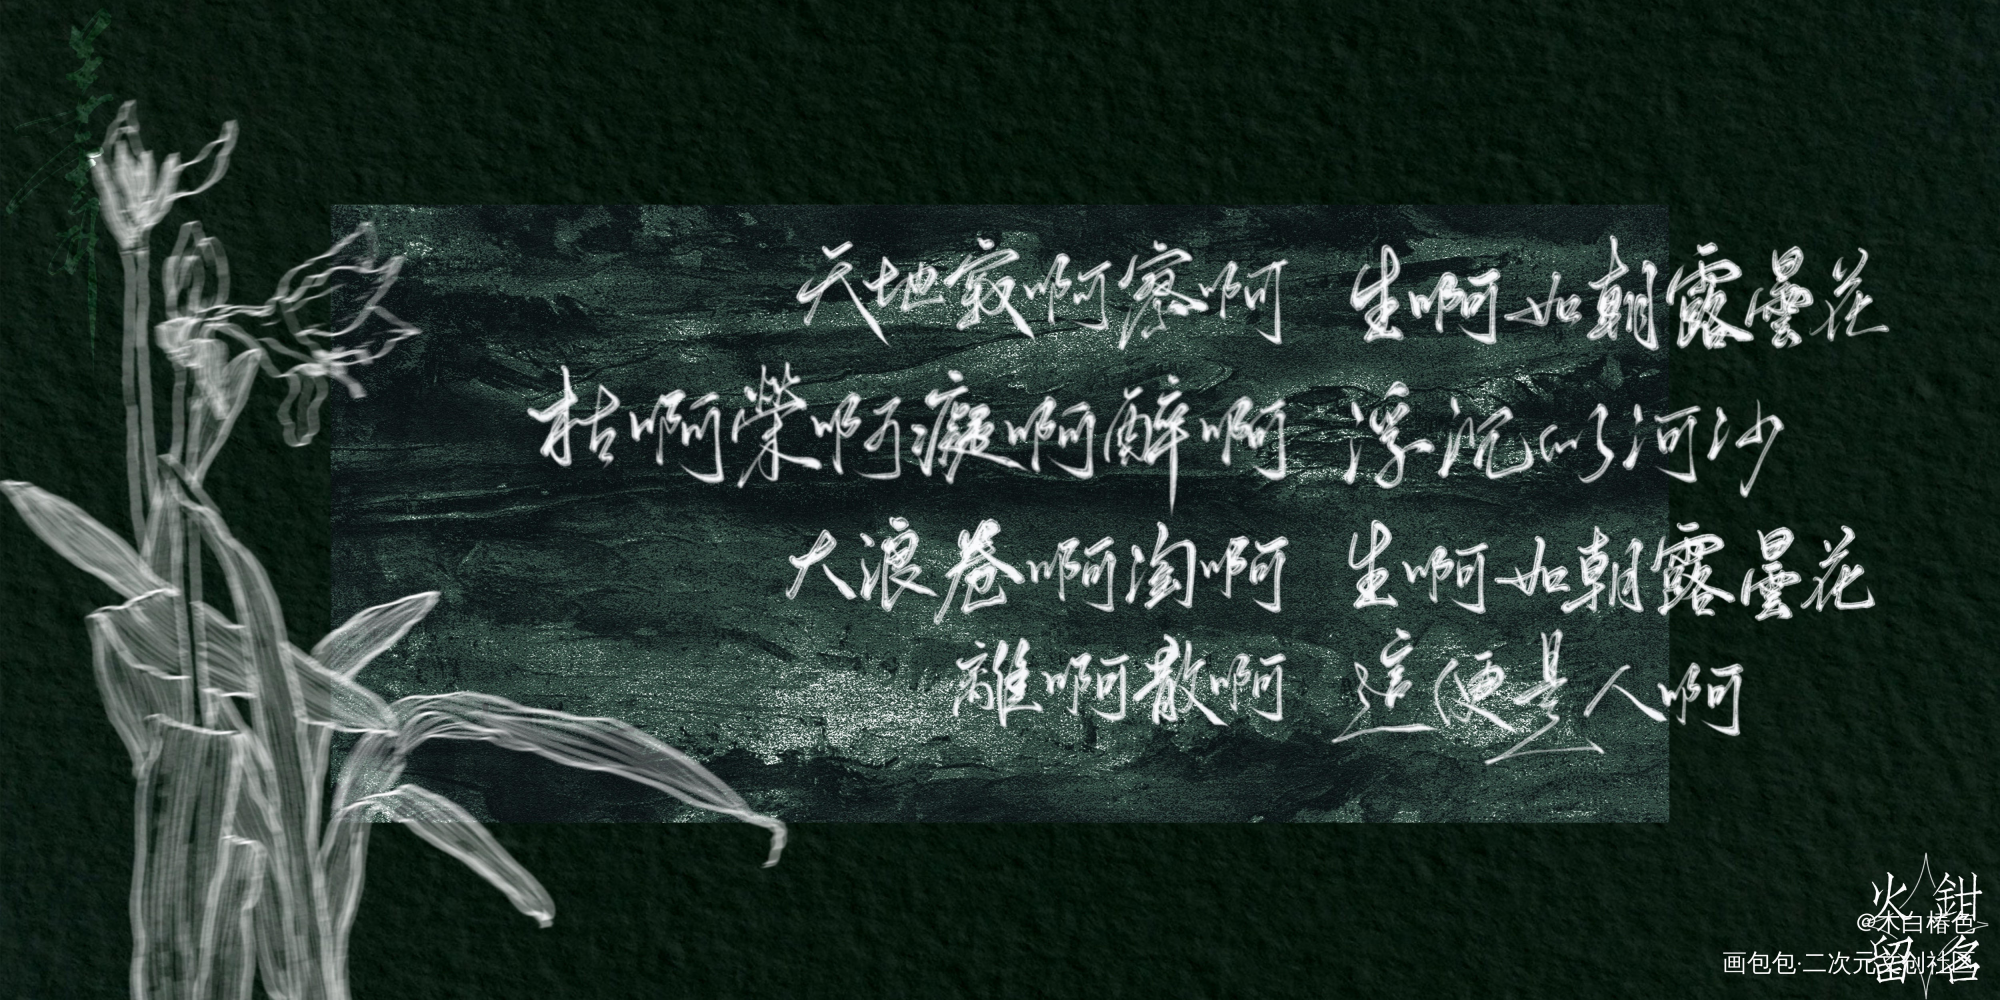 天地寂啊寥啊 生啊如朝露曇花
枯啊榮啊癡啊醉啊 浮沉似河沙
大浪卷啊淘啊 生啊如朝露曇花
離啊散啊 這便是人啊
火鉗
留名
@木白椿色
画包包·二次元文创社区